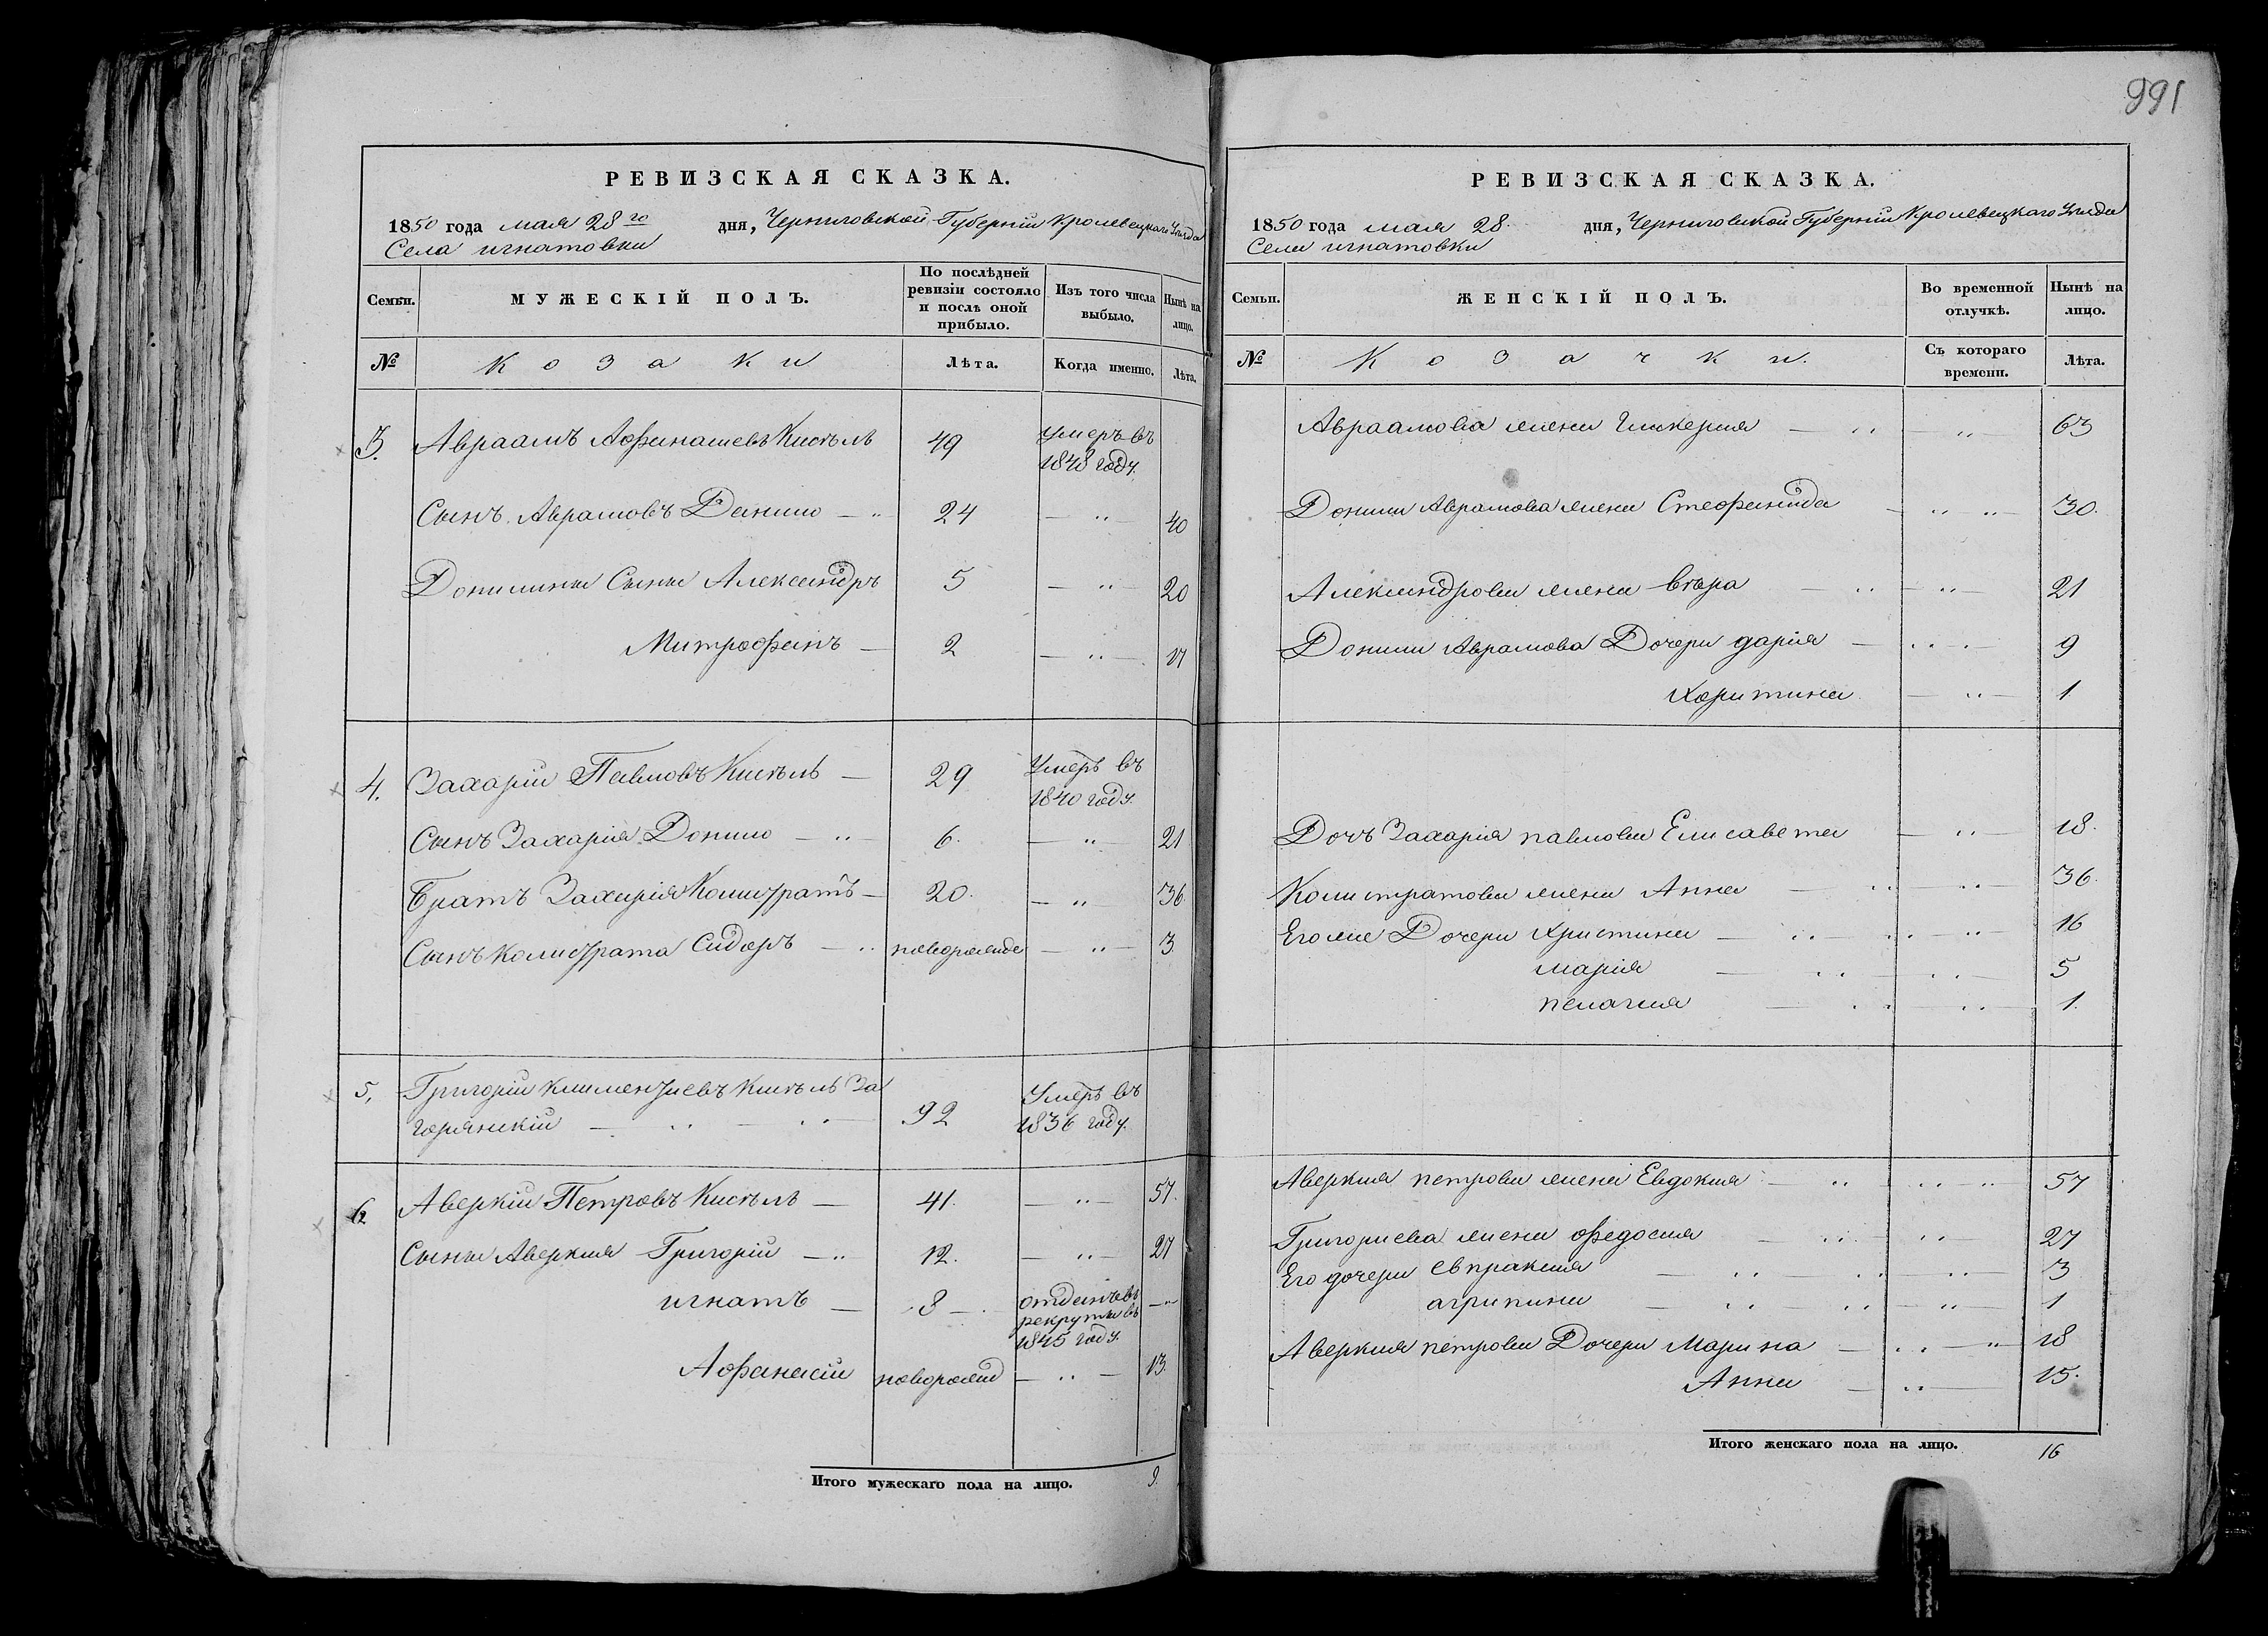 991
РЕВИЗСКАЯ СКАЗКА.
1850 года мая 28го дня, Черниговской Губерніи Кролевецкаго Уезда
Села игнатовки
Семьи. МУЖЕСКІЙ ПОЛЪ. По послѣдней ревизіи состояло и послѣ оной прибыло. Изъ того числа выбыло. Нынѣ на лицо.
№ Козаки Лѣта. Когда именно. Лѣта.
3. Авраамъ Афанашевъ Кисѣль 49 Умеръ въ
1848 году.
Сынъ Аврамовъ Данило — „ 24 — „ — 40
Донилины Сыны Александръ 5 — „ — 20
Митрофанъ — 2 — „ — 17
4. Захарій Павловъ Кисѣль — 29 Умеръ въ
1840 году.
Сынъ Захарія Донило — „ — 6. — „ — 21
Братъ Захарія Калистратъ — 20. — „ — 36
Сынъ Калистрата Сидоръ — „ новорожде — „ — 3
5. Григорій Климентіевъ Кисѣль За
горянскій — „ — „ — 92 Умеръ въ
1836 году.
6 Аверкій Петровъ Кисѣль — 41. — „ — 57.
Сыны Аверкия Григорій — „ 12. — „ — 27
игнатъ — 8 — отданъ въ
рекруты въ
1845 году. — „
Афанасій новорожд — „ — 13.
Итого мужескаго пола на лицо. 9.
РЕВИЗСКАЯ СКАЗКА.
1850 года мая 28. дня, Черниговской Губерніи Кролевецкаго Уезда
Села игнатовки
Семьи. ЖЕНСКІЙ ПОЛЪ. Во временной отлучкѣ. Нынѣ на лицо.
№ Козачки. Съ котораго времени. Лѣта.
Авраамова жена Гликерия — „ — „ — 63
Донили Аврамова жена Стефанида — „ „ — 30.
Александрова жена вѣра — „ — „ — 21
Донили Аврамова Дочери дарія — „ — 9
Харитина — „ — 1
Дочь Захарія павлова Елисавета — „ 18.
Калистратова жена Анна — „ „ 36.
Его же Дочери Христина — „ — „ „ 16
марія — „ — „ — 5
пелагия — „ — „ — 1.
Аверкия петрова жена Евдокия — „ — „ „ 57
Григориева жена Федосия — „ — „ 27
Его дочери Евпраксия — „ „ „ 3
агрипина — „ „ „ — 1
Аверкия петрова Дочери Марина — „ — „ 18
Анна — „ — 15.
Итого женскаго пола на лицо. 16